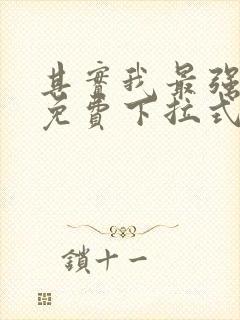 其實我最强
免費下拉式
鎖十一